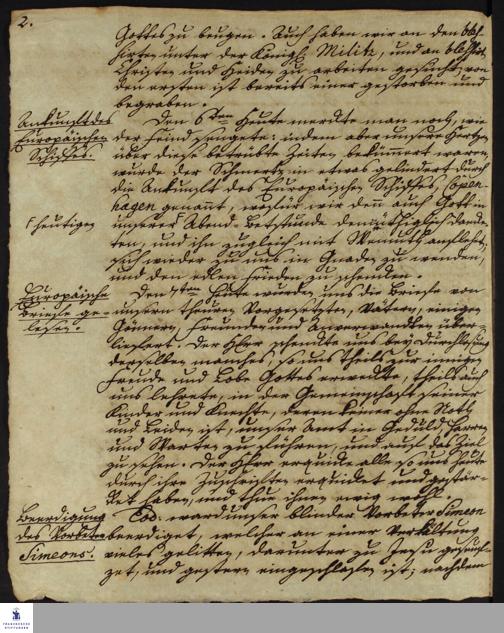 2.
Gottes zu beugen. Auch haben wir an den bles-
sirten unter der Königl. Militz, und an blessirten
Christen und Heiden zu arbeiten gesucht, von
den ersten ist bereits einer gestorben und
begraben.
Ankunft des
Europäischen
Schiffes.
Den 6ten Heute merckte man noch, wie
der Feind : indem aber unsere Hertzen
über diese betrübte Zeiten bekümmert waren,
wurde der Schmertz in etwas gelindert durch
die Ankunft des Europäischen Schiffes, Copen-
hagen genannt, wofür wir denn auch Gott in
unserer Abend-Betstunde demüthiglich danck-
heutigen
ten, und ihn zugleich mit Wehmuth anfleheten,
sich wieder zu uns in Gnaden zu wenden,
und den edlen Frieden zu schencken.
Europäische
Briefe ge-
lesen.
Den 7ten Heute wurden uns die Briefe von
unsern theuren Vorgesetzten, Vätern, einigen
Gönnern, Freunden und Anverwandten über-
liefert. Der HErr schenckte uns bey Durchlesung
derselben manches, so uns theils zur innigen
Freude und Lobe Gottes erweckte, theils auch
uns lehrete, in der Gemeinschaft seiner
Kinder und Knechte, deren keiner ohne Noth
und Leiden ist, unser Amt in Geduld, Harren
und Warten zu führen, und auf das Ziel
zu sehen. Der HErr erquicke alle, so uns heute
durch ihre Zuschriften erquicket und gestär-
cket haben, und thue ihnen ewig wohl.
Beerdigung
des Vorbeters
Simeons.
Eod. ward unser blinder Vorbeter Simeon
beerdiget, welcher an einer Verkältung
vieles gelitten, darunter zu Jesu geseuf-
zet, und gestern eingeschlafen ist; nachdem
FRANCKESCHE
STIFTUNGEN